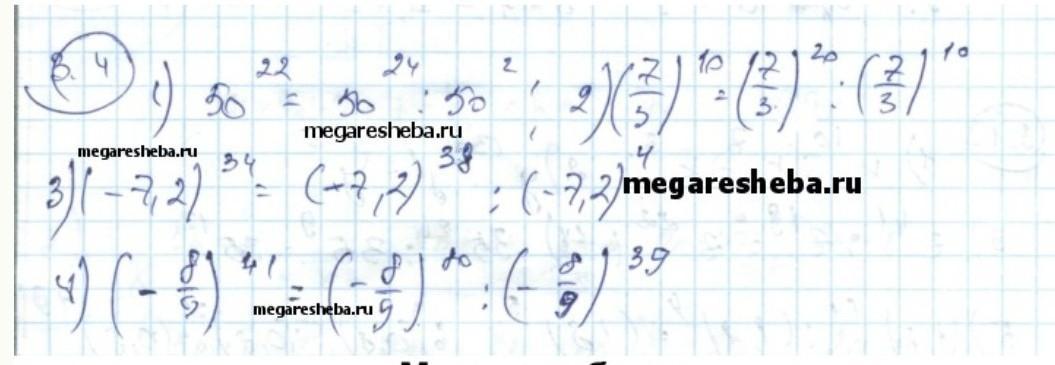 3.4 1) 50^22 = 50^24 : 50^2 ; 2) (7/3)^10 = (7/3)^20 : (7/3)^10
megaresheba.ru
megaresheba.ru
3) (-7,2)^34 = (-7,2)^38 : (-7,2)^4
megaresheba.ru
4) (-8/9)^41 = (-8/9)^80 : (-8/9)^39
megaresheba.ru